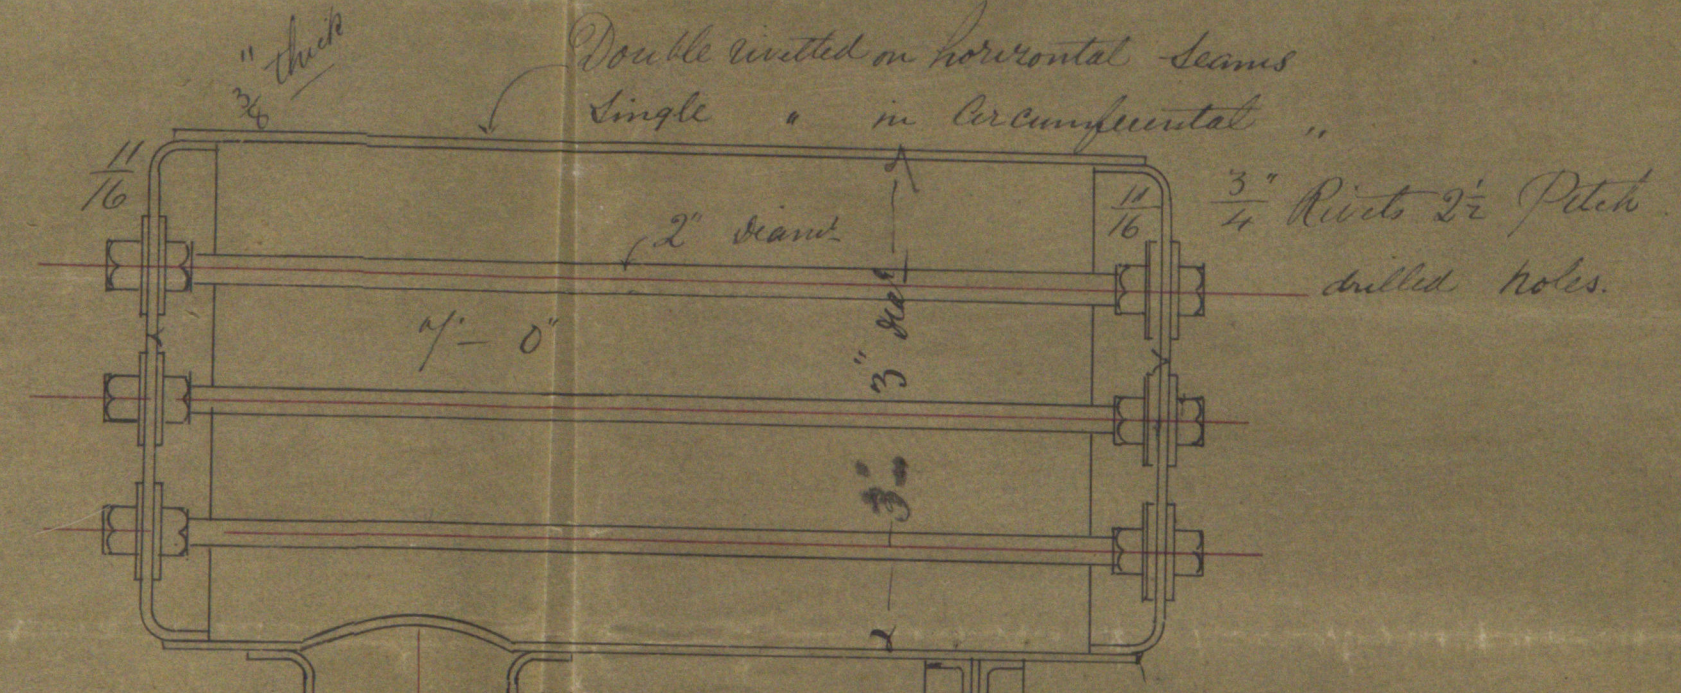 3/8" thick
Double rivetted on horizontal Seams
Single " in Circumferental "
11/16
11/16
3/4" Rivets 2 1/2 Pitch
drilled holes.
2" diamr
7'- 0"
3" dia
3"